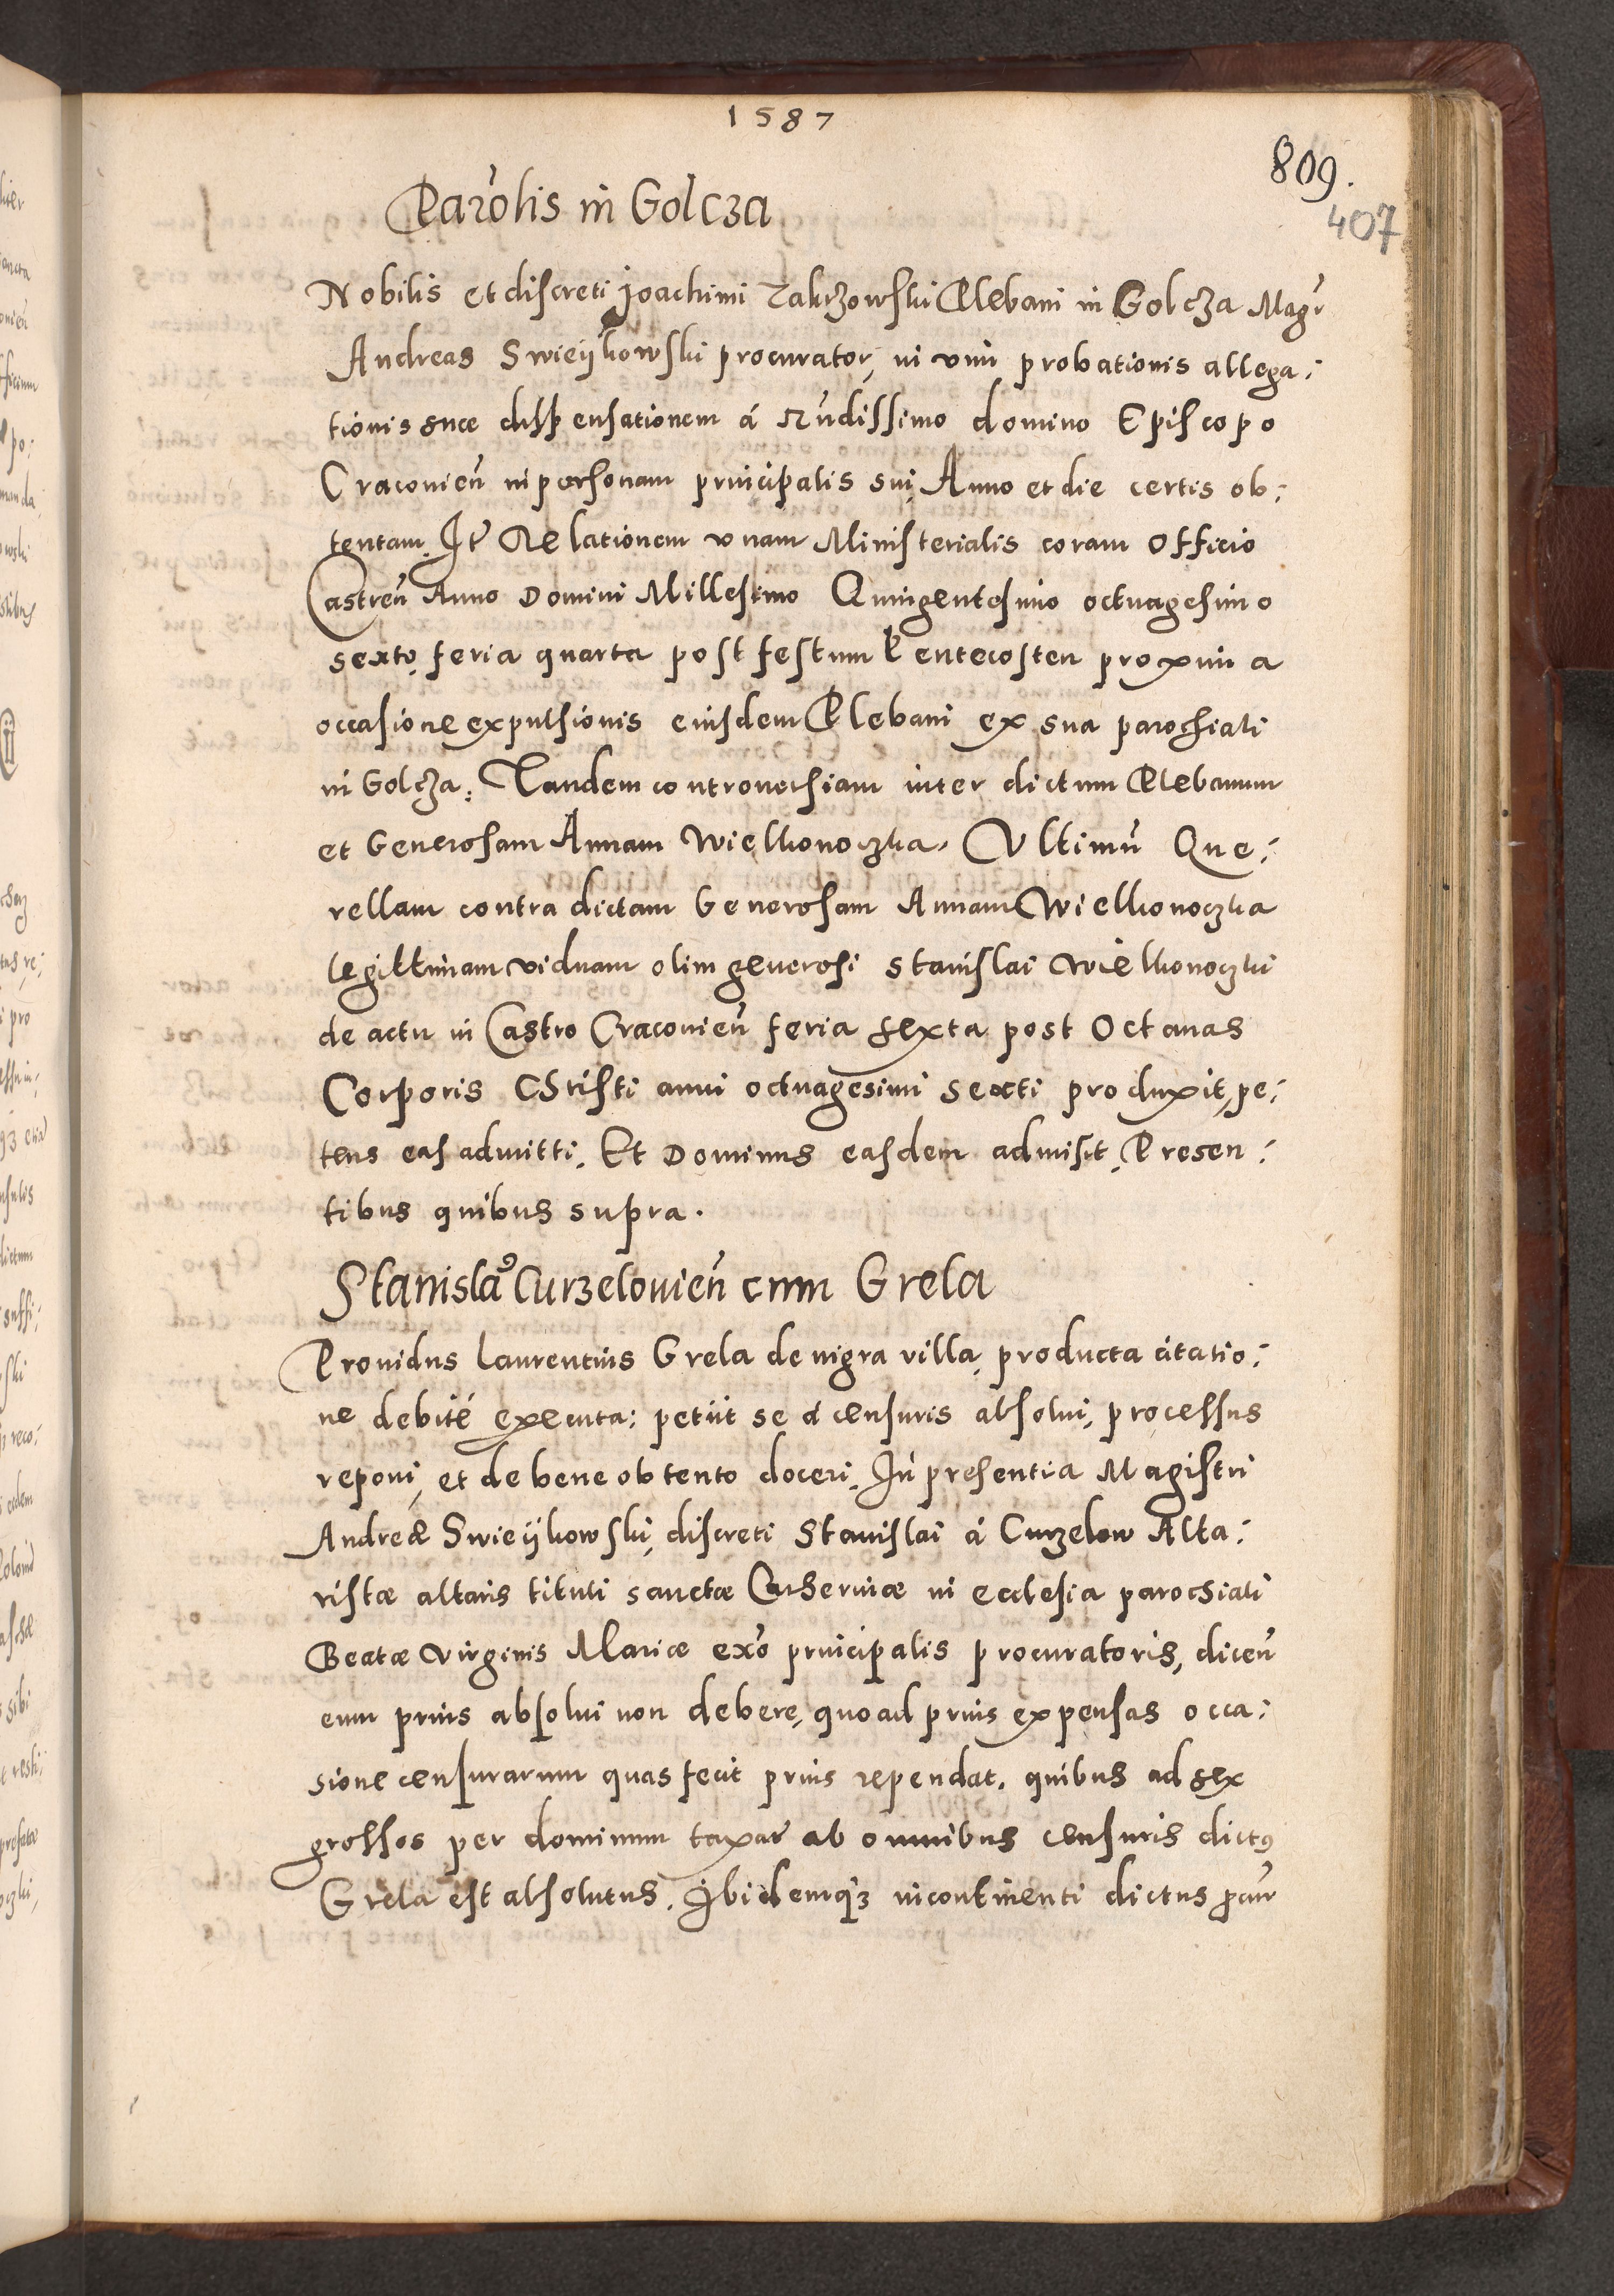 1587
809.
407
Parôlis in Golcza
Nobilis et discreti Joachimi Zakrzowski Plebani in Golcza Magr
Andreas Swieÿkowski procurator, in vim probationis allega:
tionis suæ dispensationem á Rndissimo domino Episcopo
Craconien̄ in personam principalis sui, Anno et die certis ob:
tentam. It Relationem vnam Ministerialis coram Officio
Castren̄ Anno Domini Millesimo Quingentesimo octuagesimo
sexto, feria quarta post festum Pentecosten proxima
occasione expulsionis eiusdem Plebani ex sua parochiali
in Golcza. Tandem controuersiam inter dictum Plebanum
et Generosam Annam Wielkonoczka. Vltimū Que:
rellam contra dictam Generosam Annam Wielkonoczka
legittimam viduam olim generosi Stanislai Wielkonoczki
de actu in Castro Cracouien̄ feria sexta post Octauas
Corporis Christi anni octuagesimi sexti produxit, pe:
tens eas admitti. Et Dominus easdem admisit, Presen:
tibus quibus supra.
Stanislaꝰ Curzelouien̄ cum Grela
Prouidus Laurentius Grela de nigra villa, producta citatio:
ne debité executa; petiit se á censuris absolui, processus
reponi, et de bene obtento doceri. In presentia Magistri
Andreæ Swieÿkowski, discreti Stanislai á Curzelow Alta:
ristæ altaris tituli sanctæ Catherinæ in ecclesia parochiali
Beatæ Virginis Mariæ exo principalis procuratoris, dicen̄
eum prius absolui non debere, quoad prius expensas occa:
sione censurarum quas fecit prius rependat. quibus ad sex
grossos per dominum taxat̄ ab omnibus censuris dictꝰ
Grela est absolutus. Ibidemqꝫ incontinenti dictus pcur